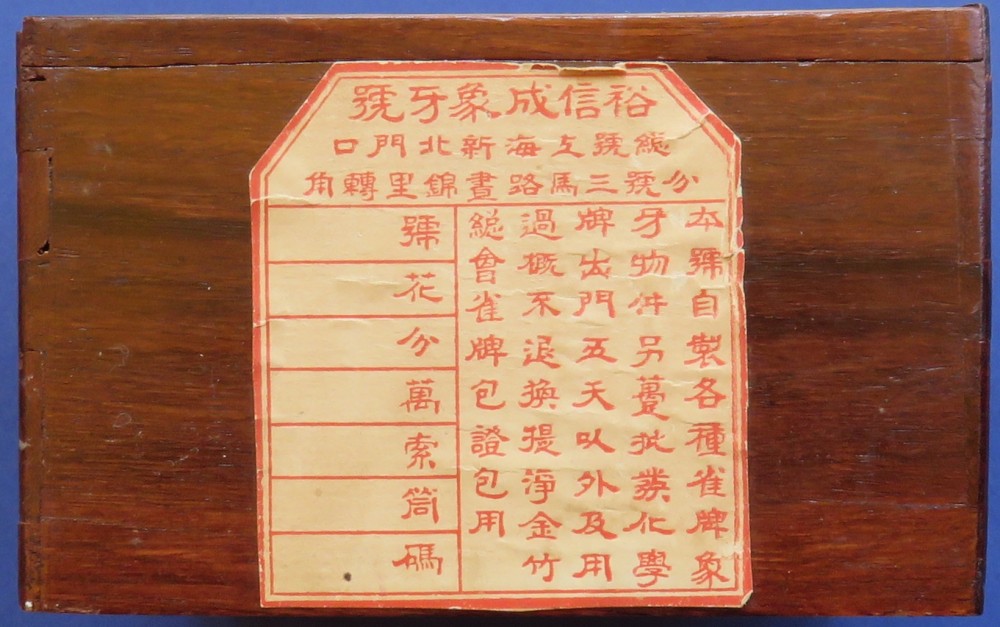 裕信成象牙號
總號上海新北門口
分號三馬路晝錦里轉角
本號自製各種雀牌象
牙物件另躉批發化學
牌出門五天以外及用
過概不退換提淨金竹
總會雀牌包證包用
號
花
分
萬
索
筒
碼